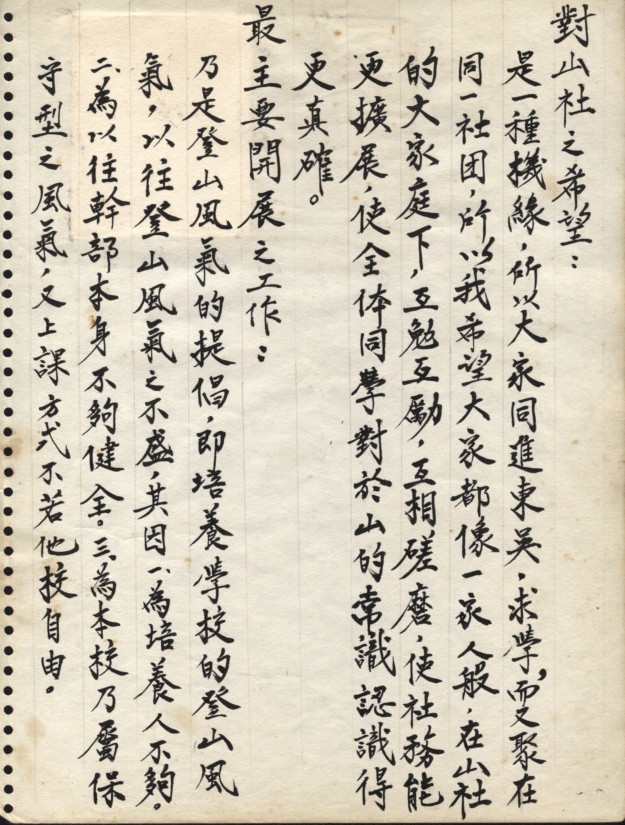 對山社之希望：
是一種機緣，所以大家同進東吳，求學，而又聚在
同一社团，所以我希望大家都像一家人般，在山社
的大家庭下，互勉互勵，互相磋磨，使社務能
更擴展，使全体同學對於山的常識認識得
更真確。
最主要開展之工作：
乃是登山風氣的提倡，即培養學校的登山風
氣，以往登山風氣之不盛，其因一、為培養人不夠。
二、為以往幹部本身不夠健全。三、為本校乃屬保
守型之風氣，又上課方式不若他校自由。